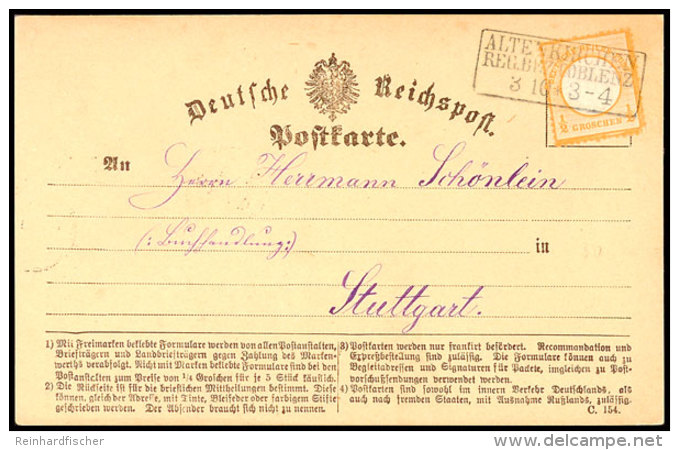 Deutsche Reichspost.
Postkarte.
ALTENKIRCHEN
REG.BEZ. COBLENZ
3 10 3-4
1/2 GROSCHEN 1/2
An Herrn Herrmann Schönlein
(:Buchhandlung:)
in
Stuttgart.
1) Mit Freimarken beklebte Formulare werden von allen Postanstalten,
Briefträgern und Landbriefträgern gegen Zahlung des Marken-
werths verabfolgt. Nicht mit Marken beklebte Formulare sind bei den
Postanstalten zum Preise von 1/4 Groschen für 5 Stück käuflich.
2) Die Rückseite ist für die brieflichen Mittheilungen bestimmt. Die
können, gleich der Adresse, mit Tinte, Bleifeder oder farbigem Stifte
geschrieben werden. Der Absender braucht sich nicht zu nennen.
3) Postkarten werden nur frankirt befördert. Recommandation und
Expreßbestellung sind zulässig. Die Formulare können auch zu
Begleitadressen und Signaturen für Packete, imgleichen zu Post-
vorschußsendungen verwendet werden.
4) Postkarten sind sowohl im innern Verkehr Deutschlands, als
auch nach fremden Staaten, mit Ausnahme Rußlands, zulässig.
C. 154.
Reinhardfischer
delcampe.net